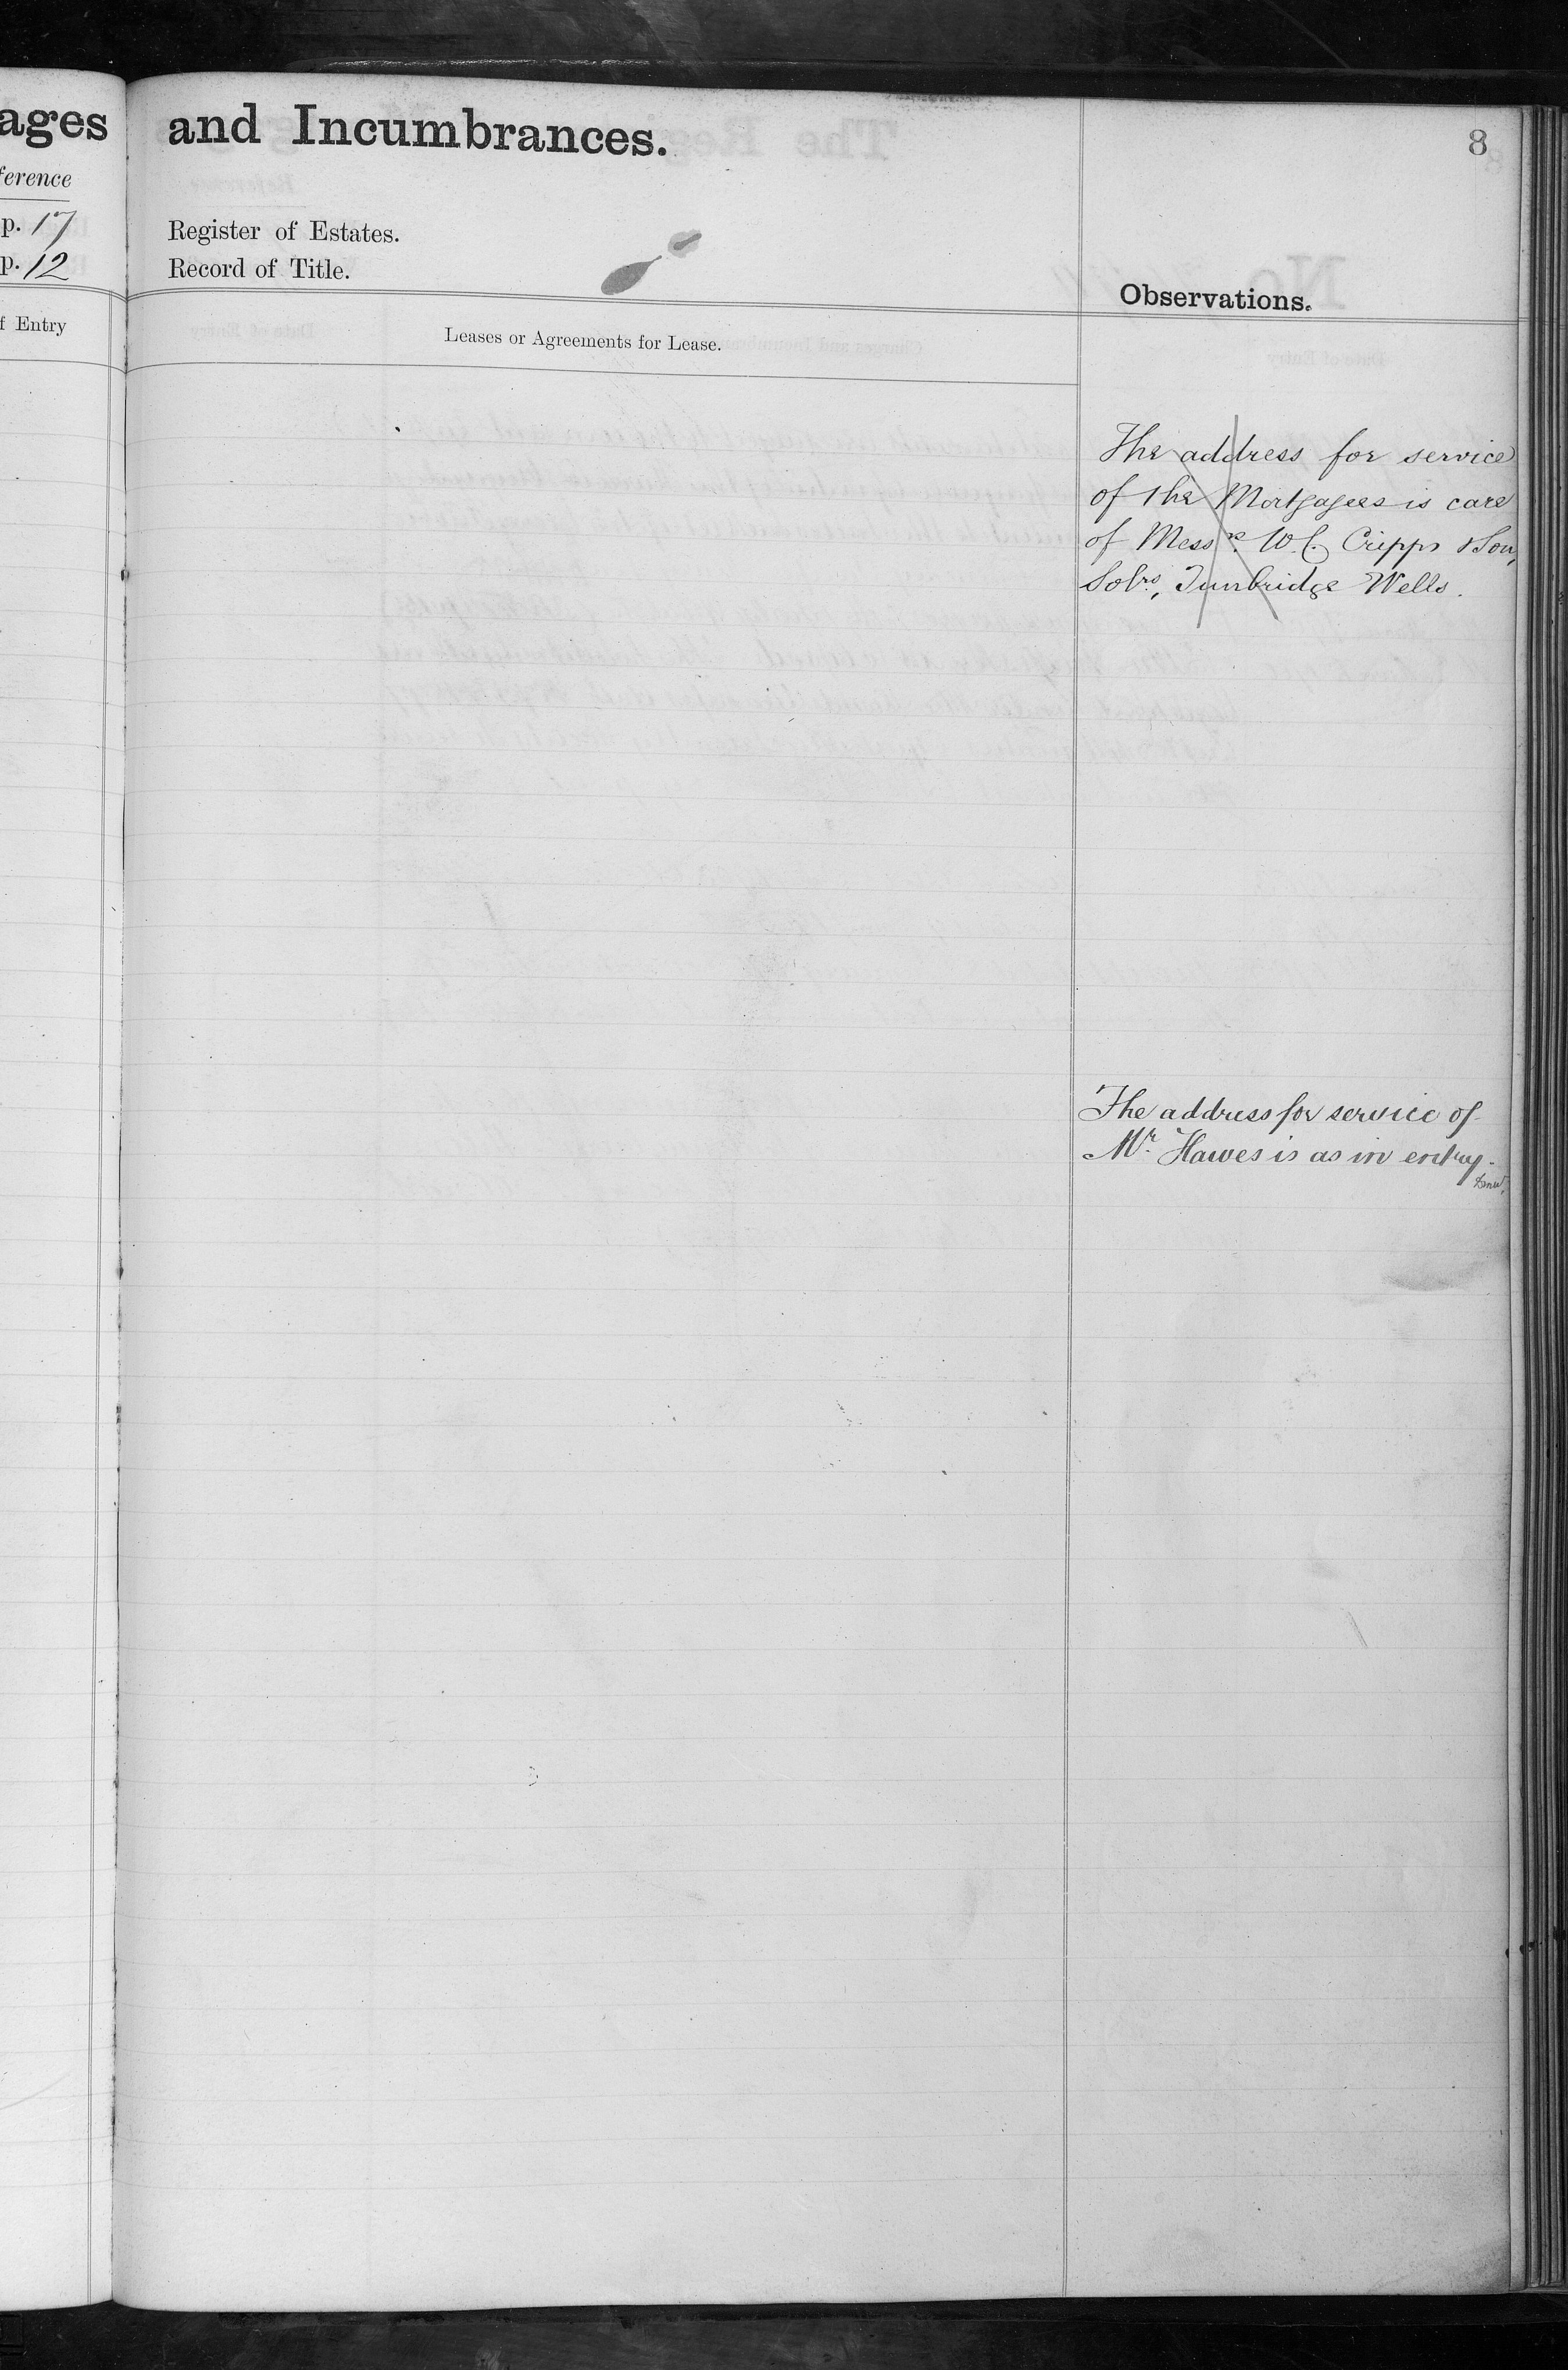 ages
ference
p. 17
p. 12
f Entry
and Incumbrances.
8
Register of Estates.
Record of Title.
Observations.
Leases or Agreements for Lease.
The address for service
of the Mortgagees is care
of Messrs. W. C. Cripps & Son,
Solrs., Tunbridge Wells.
The address for service of
Mr. Hawes is as in entry.